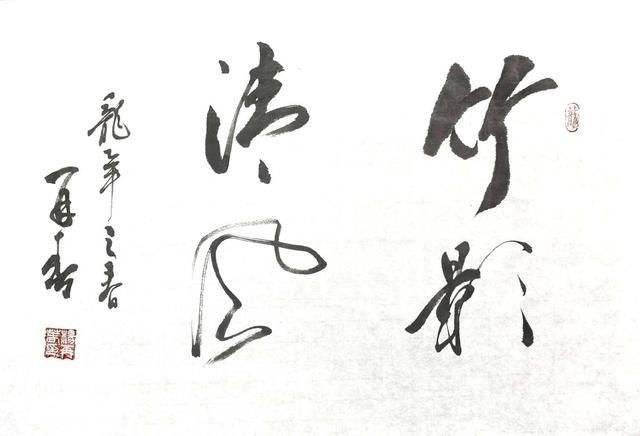 竹影
清风
龍年之春
再春